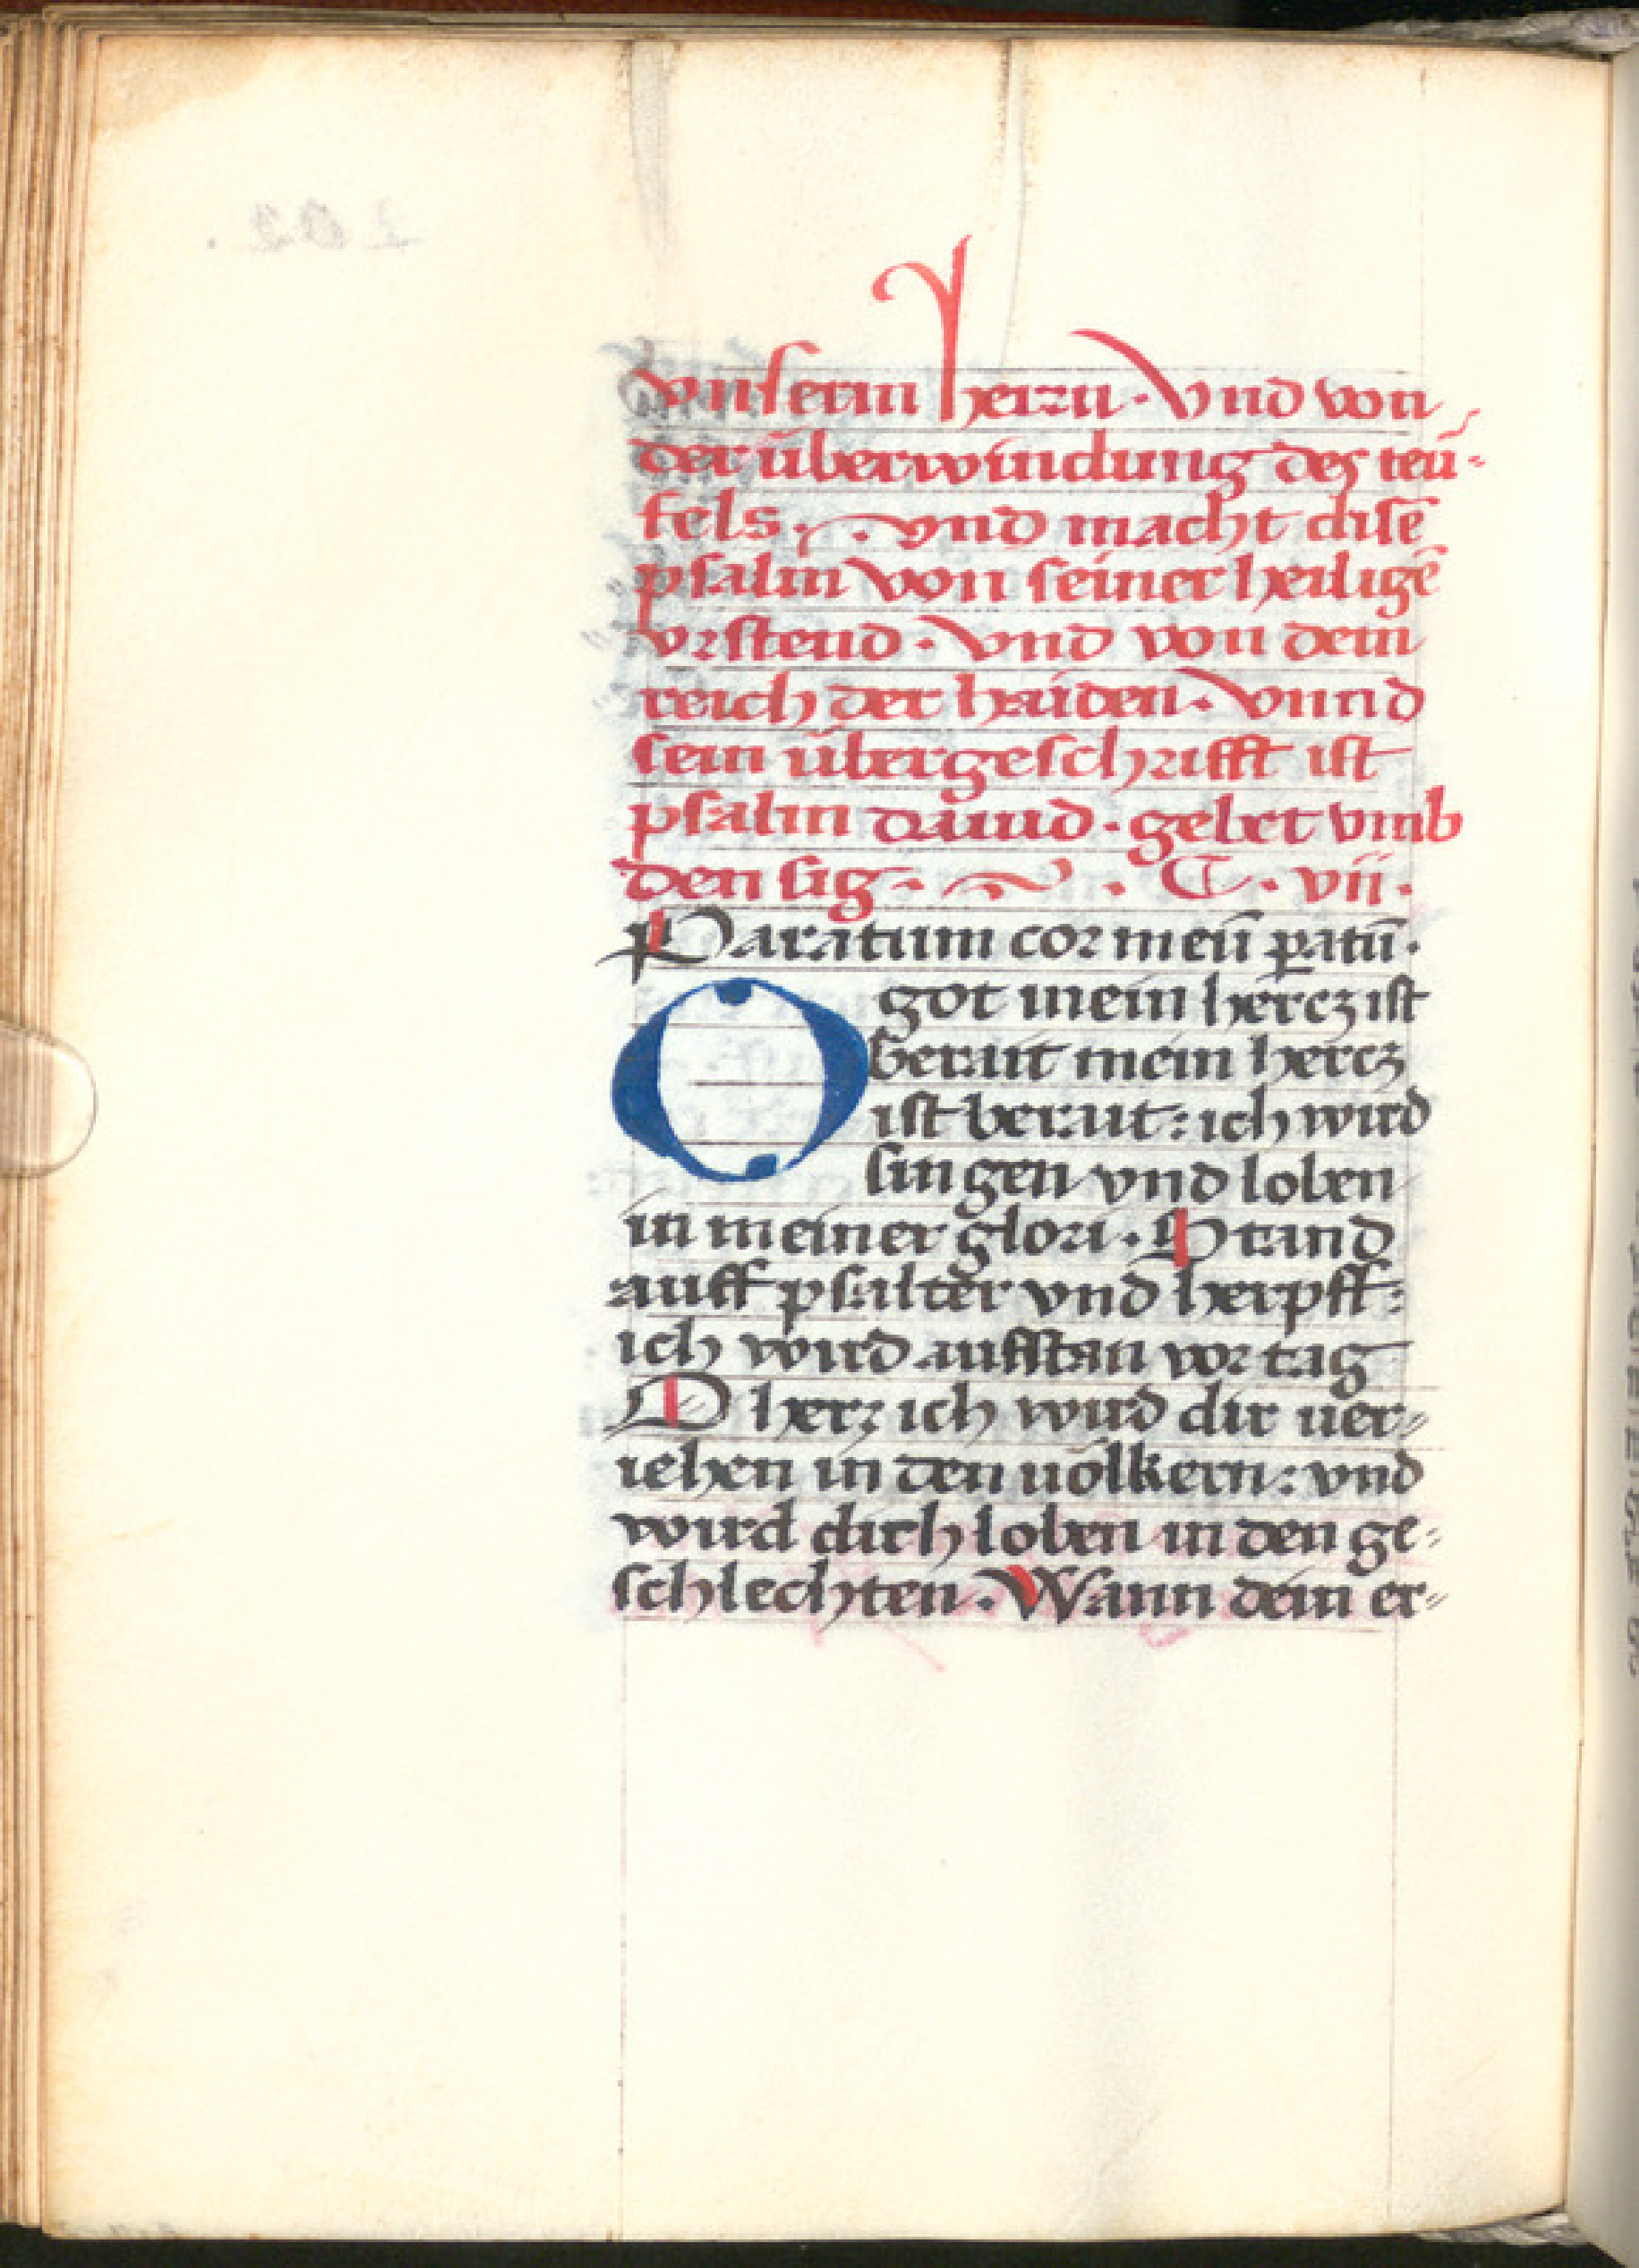 vnserm herrn · Vnd von
der überwindung des teü-
fels · vnd macht disē
psalm von seiner heiligē
vrstend · vnd von dem
reich der haiden · vnnd
sein übergeschrifft ist
psalm dauid · gebet vmb
den sig · C · vii ·
Paratum cor meū ꝑatū ·
O got mein hercz ist
berait mein hercz
ist berait : ich wird
singen vnd loben
in meiner glori · Stand
auff psalter vnd herpff :
ich wird auffstan vor tag
O herr ich wird dir uer-
iehen in den uölkern : vnd
wird dich loben in den ge-
schlechten · Wann dein er-